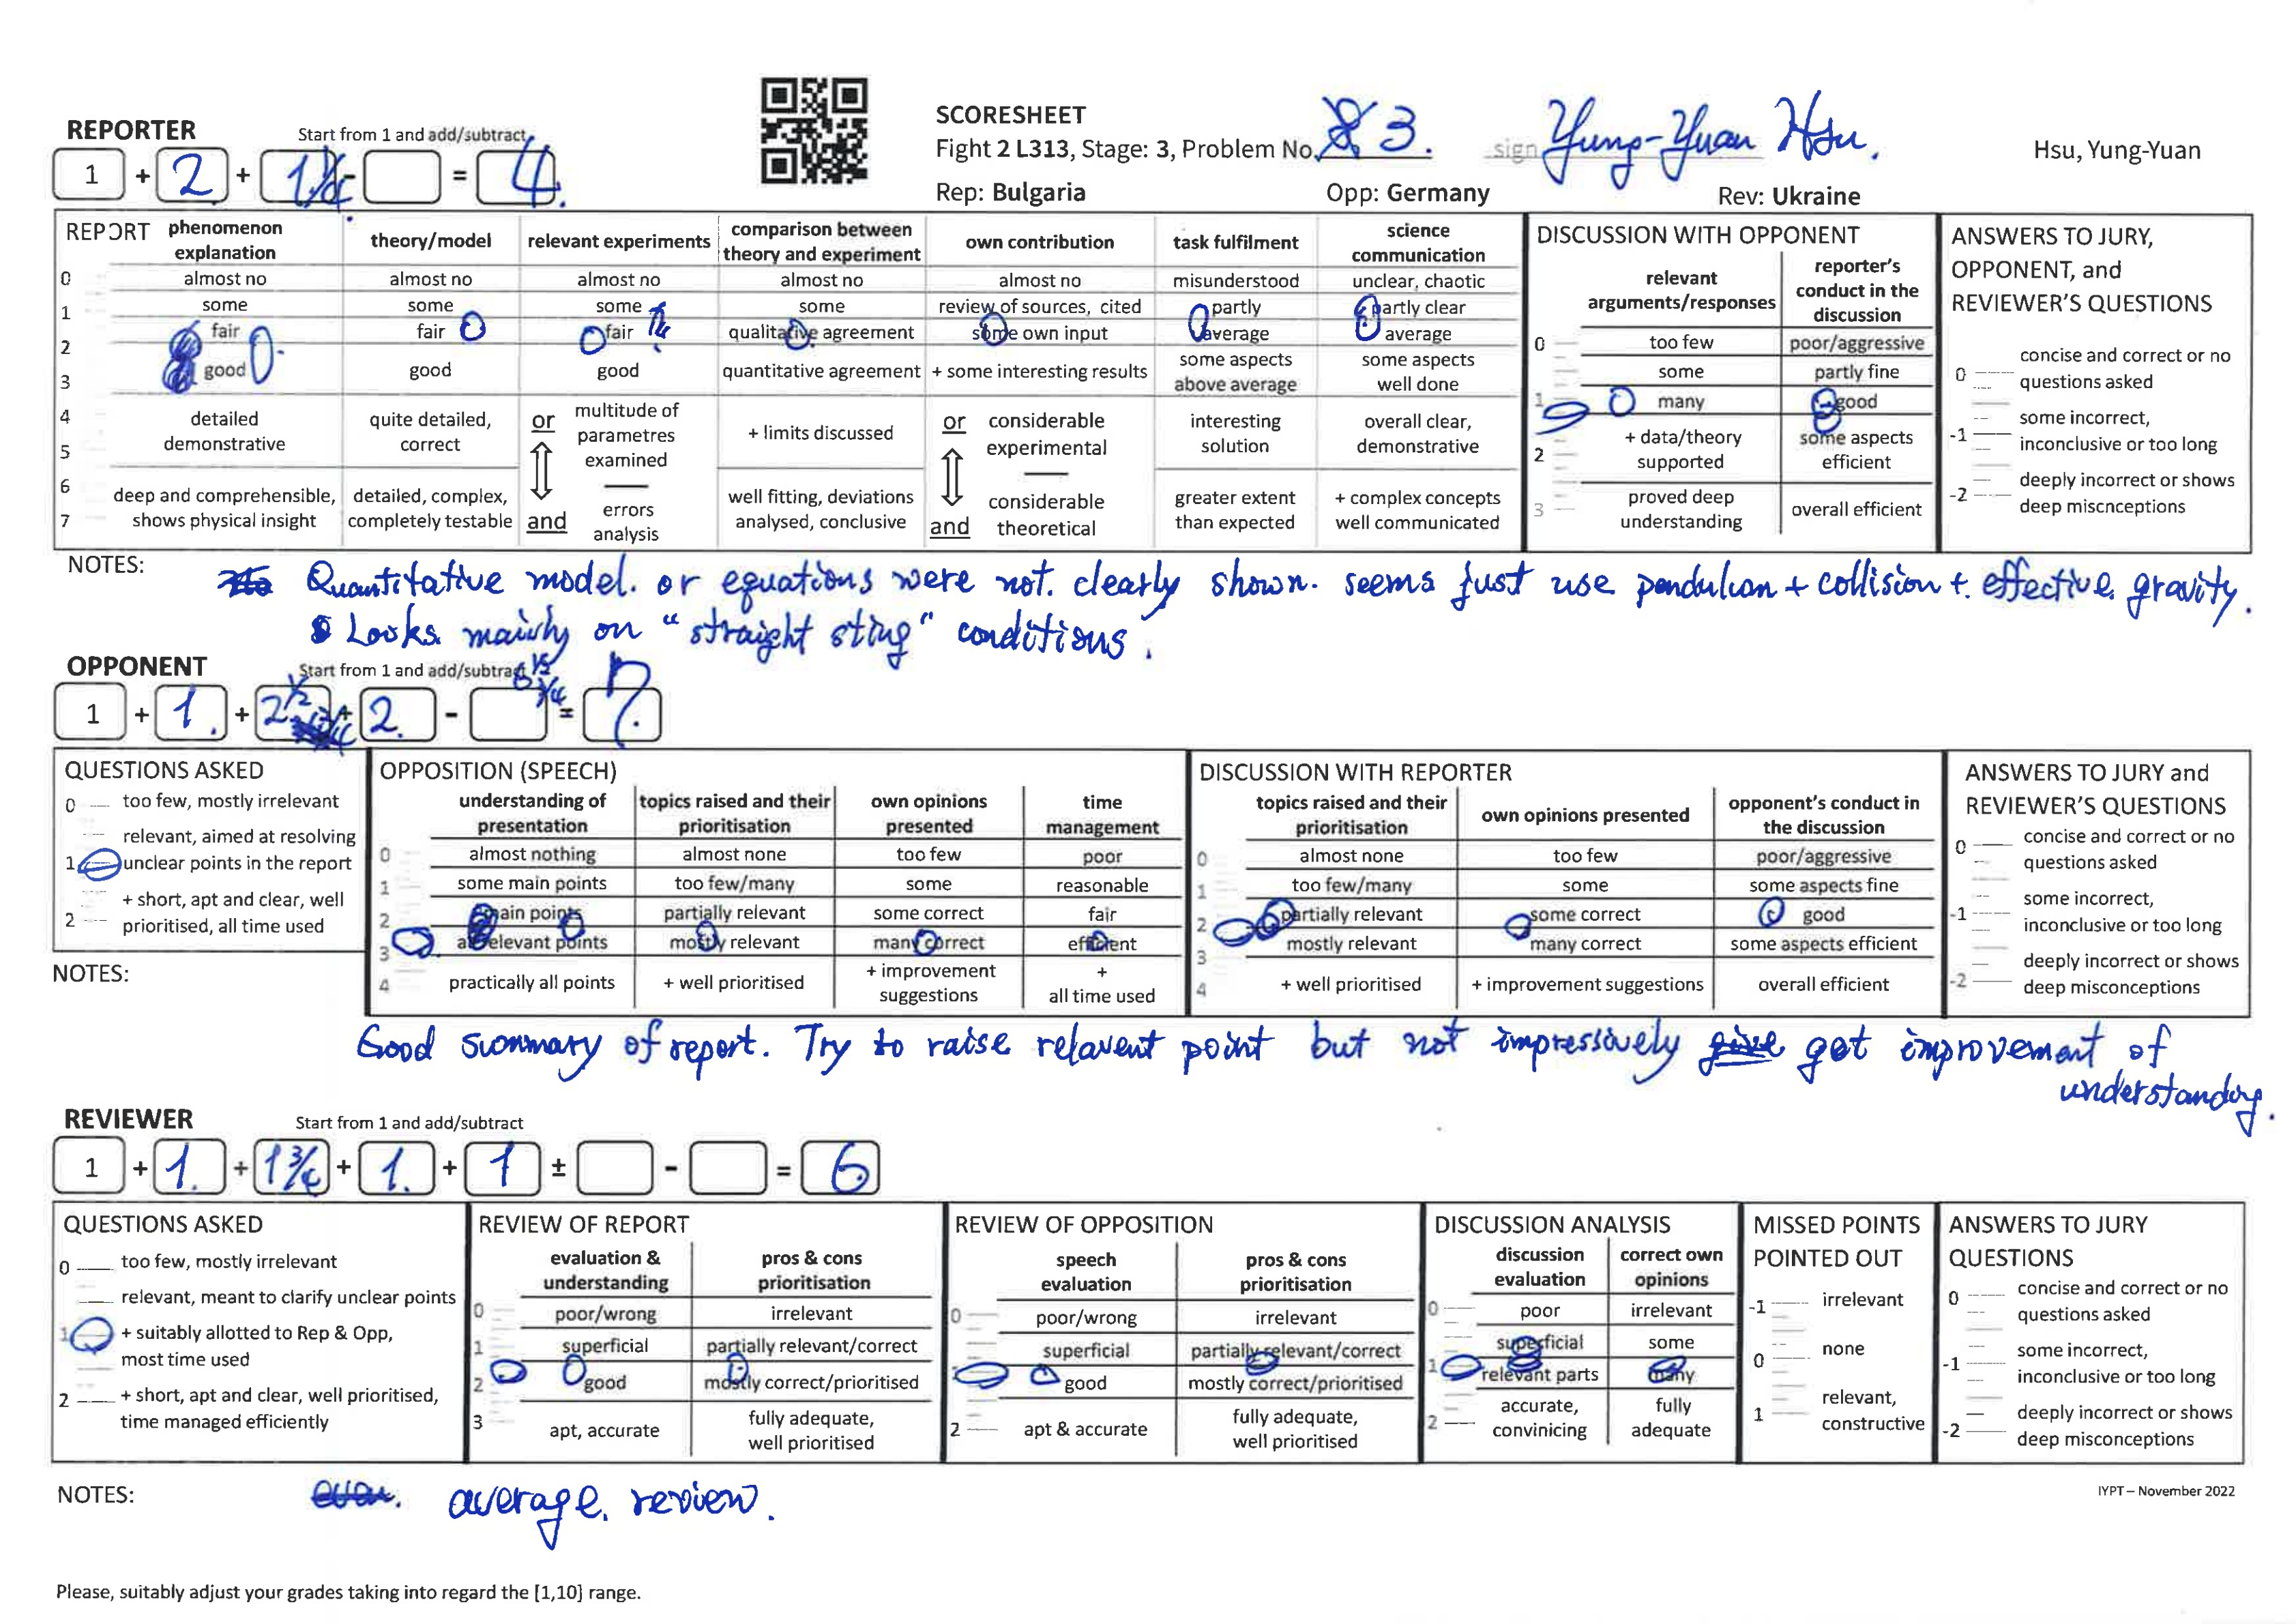 SCORESHEET
Fight 2 L313, Stage: 3, Problem No. 3.
sign Yung-Yuan Hsu.
Hsu, Yung-Yuan
Rep: Bulgaria Opp: Germany Rev: Ukraine
REPORTER Start from 1 and add/subtract
1 + 2 + 1 - = 4.
REPORT
phenomenon explanation
0 almost no
1 some
2 fair
3 good
4 detailed
5 demonstrative
6 deep and comprehensible,
7 shows physical insight
theory/model
almost no
some
fair
good
quite detailed,
correct
detailed, complex,
completely testable
relevant experiments
almost no
some 1/4
fair
good
or multitude of
parametres
examined
and errors
analysis
comparison between
theory and experiment
almost no
some
qualitative agreement
quantitative agreement
+ limits discussed
well fitting, deviations
analysed, conclusive
own contribution
almost no
review of sources, cited
some own input
+ some interesting results
or considerable
experimental
and considerable
theoretical
task fulfilment
misunderstood
partly
average
some aspects
above average
interesting
solution
greater extent
than expected
science
communication
unclear, chaotic
partly clear
average
some aspects
well done
overall clear,
demonstrative
+ complex concepts
well communicated
DISCUSSION WITH OPPONENT
relevant
arguments/responses
0 too few
some
1 many
2 + data/theory
supported
3 proved deep
understanding
reporter's
conduct in the
discussion
poor/aggressive
partly fine
good
some aspects
efficient
overall efficient
ANSWERS TO JURY,
OPPONENT, and
REVIEWER'S QUESTIONS
0 concise and correct or no
questions asked
-1 some incorrect,
inconclusive or too long
-2 deeply incorrect or shows
deep miscnceptions
NOTES:
Quantitative model. or equations were not. clearly shown. seems just use pendulum + collision + effective gravity.
Looks mainly on "straight sting" conditions.
OPPONENT Start from 1 and add/subtract
1 + 1. + 2 1/2 + 2. - = 7.
QUESTIONS ASKED
0 too few, mostly irrelevant
relevant, aimed at resolving
1 unclear points in the report
+ short, apt and clear, well
2 prioritised, all time used
OPPOSITION (SPEECH)
understanding of
presentation
0 almost nothing
1 some main points
2 main points
3 all relevant points
4 practically all points
topics raised and their
prioritisation
almost none
too few/many
partially relevant
mostly relevant
+ well prioritised
own opinions
presented
too few
some
some correct
many correct
+ improvement
suggestions
time
management
poor
reasonable
fair
efficient
+
all time used
DISCUSSION WITH REPORTER
topics raised and their
prioritisation
0 almost none
1 too few/many
2 partially relevant
3 mostly relevant
4 + well prioritised
own opinions presented
too few
some
some correct
many correct
+ improvement suggestions
opponent's conduct in
the discussion
poor/aggressive
some aspects fine
good
some aspects efficient
overall efficient
ANSWERS TO JURY and
REVIEWER'S QUESTIONS
0 concise and correct or no
questions asked
-1 some incorrect,
inconclusive or too long
-2 deeply incorrect or shows
deep misconceptions
NOTES:
Good summary of report. Try to raise relavent point but not impressively give get improvement of
understanding.
REVIEWER Start from 1 and add/subtract
1 + 1. + 1 3/4 + 1. + 1 ± - = 6
QUESTIONS ASKED
0 too few, mostly irrelevant
relevant, meant to clarify unclear points
1 + suitably allotted to Rep & Opp,
most time used
2 + short, apt and clear, well prioritised,
time managed efficiently
REVIEW OF REPORT
evaluation &
understanding
0 poor/wrong
1 superficial
2 good
3 apt, accurate
pros & cons
prioritisation
irrelevant
partially relevant/correct
mostly correct/prioritised
fully adequate,
well prioritised
REVIEW OF OPPOSITION
speech
evaluation
0 poor/wrong
superficial
good
2 apt & accurate
pros & cons
prioritisation
irrelevant
partially relevant/correct
mostly correct/prioritised
fully adequate,
well prioritised
DISCUSSION ANALYSIS
discussion
evaluation
0 poor
superficial
1 relevant parts
2 accurate,
convinicing
correct own
opinions
irrelevant
some
many
fully
adequate
MISSED POINTS
POINTED OUT
-1 irrelevant
0 none
1 relevant,
constructive
ANSWERS TO JURY
QUESTIONS
0 concise and correct or no
questions asked
-1 some incorrect,
inconclusive or too long
-2 deeply incorrect or shows
deep misconceptions
NOTES:
average. review.
IYPT – November 2022
Please, suitably adjust your grades taking into regard the [1,10] range.